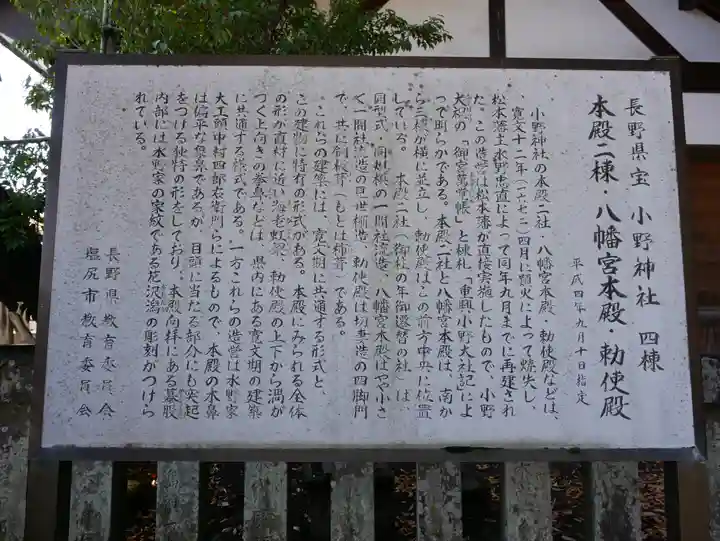 長野県宝 小野神社 四棟
本殿二棟・八幡宮本殿・勅使殿
平成四年九月十日指定
小野神社の本殿二社、八幡宮本殿、勅使殿などは、
寛文十二年(一六七二)四月に類火によって焼失し、
松本藩主水野忠直によって同年九月までに再建され
た。この造営は松本藩が直接実施したもので、小野
大橋の「御宮萬事帳」と棟札「重興小野大社記」によ
って明らかである。本殿二社と八幡宮本殿は、南か
ら三棟が横に並立し、勅使殿はこの前方中央に位置
している。本殿二社(御社の年御遷替の社)は、
同型式、同規模の一間社流造、八幡宮本殿はやや小さ
く一間社流造の見世棚造、勅使殿は切妻造の四脚門
で、共に銅板葺(もとは柿葺)である。
これらの建築には、寛文期に共通する形式と、
この建物に特有の形式がある。本殿にみられる全体
の形が直材に近い海老虹梁、勅使殿の上下から渦が
つく上向きの拳鼻などは、県内にある寛文期の建築
に共通する様式である。一方これらの造営は水野家
大工頭中村四郎右衛門らによるもので、本殿の木鼻
は偏平な象鼻であるが、目頭に当たる部分にも突起
をつける独特の形をしており、本殿向拝にある蟇股
内部には水野家の家紋である花沢潟の彫刻がつけら
れている。
長野県教育委員会
塩尻市教育委員会